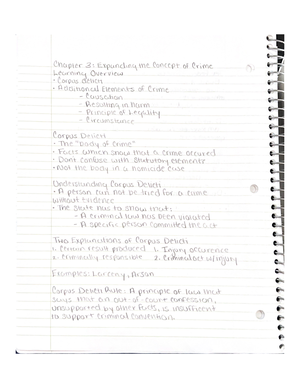 Chapter 3: Expanding the Concept of Crime
Learning Overview
- Corpus delicti
- Additional Elements of Crime
- Causation
- Resulting in harm
- Principle of Legality
- Circumstance
Corpus Delicti
- The "body of crime"
- Facts which show that a crime occured
- Don't confuse with statutory elements
- Not the body in a homicide case
Understanding Corpus Delicti
- A person can not be tried for a crime
without evidence
- The State has to show that:
- A criminal law has been violated
- A specific person committed the act
Two Explanations of Corpus Delicti
1. Certain result produced 1. Injury occurrence
2. Criminally responsible 2. Criminal act w/injury
Examples: Larceny, Arson
Corpus Delicti Rule: A principle of law that
says that an out-of-court confession,
unsupported by other facts, is insufficient
to support criminal conviction.